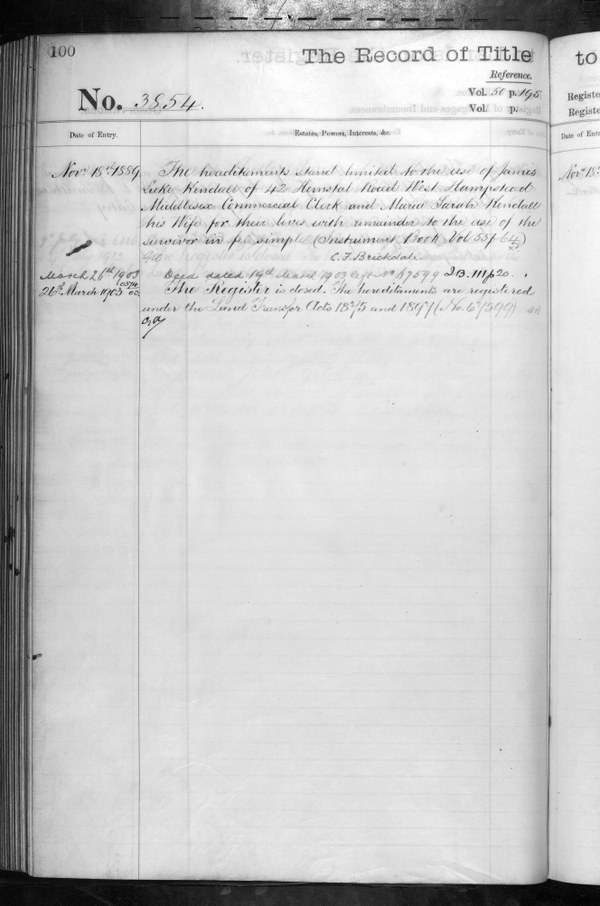 100
The Record of Title
Reference.
Vol. 50 p. 195
Vol. p.
No. 3854.
Date of Entry.
Estates, Powers, Interests, &c.
Novr 18th 1889
The hereditaments stand limited to the use of James
Luke Kendall of 42 Hemstal Road West Hampstead
Middlesex Commercial Clerk and Maria Sarah Kendall
his Wife for their lives with remainder to the use of the
survivor in fee simple (Instrument Book Vol 55 p 64)
C. F. Brickdale
March 26th 1903
Deed dated 19th March 1903 No 67599 I.B. 111 p 20.
26th March 1903
The Register is closed. The hereditaments are registered
under the Land Transfer Acts 1875 and 1897 (No. 67599)
to
Registe
Registe
Date of Ent
Novr 18th